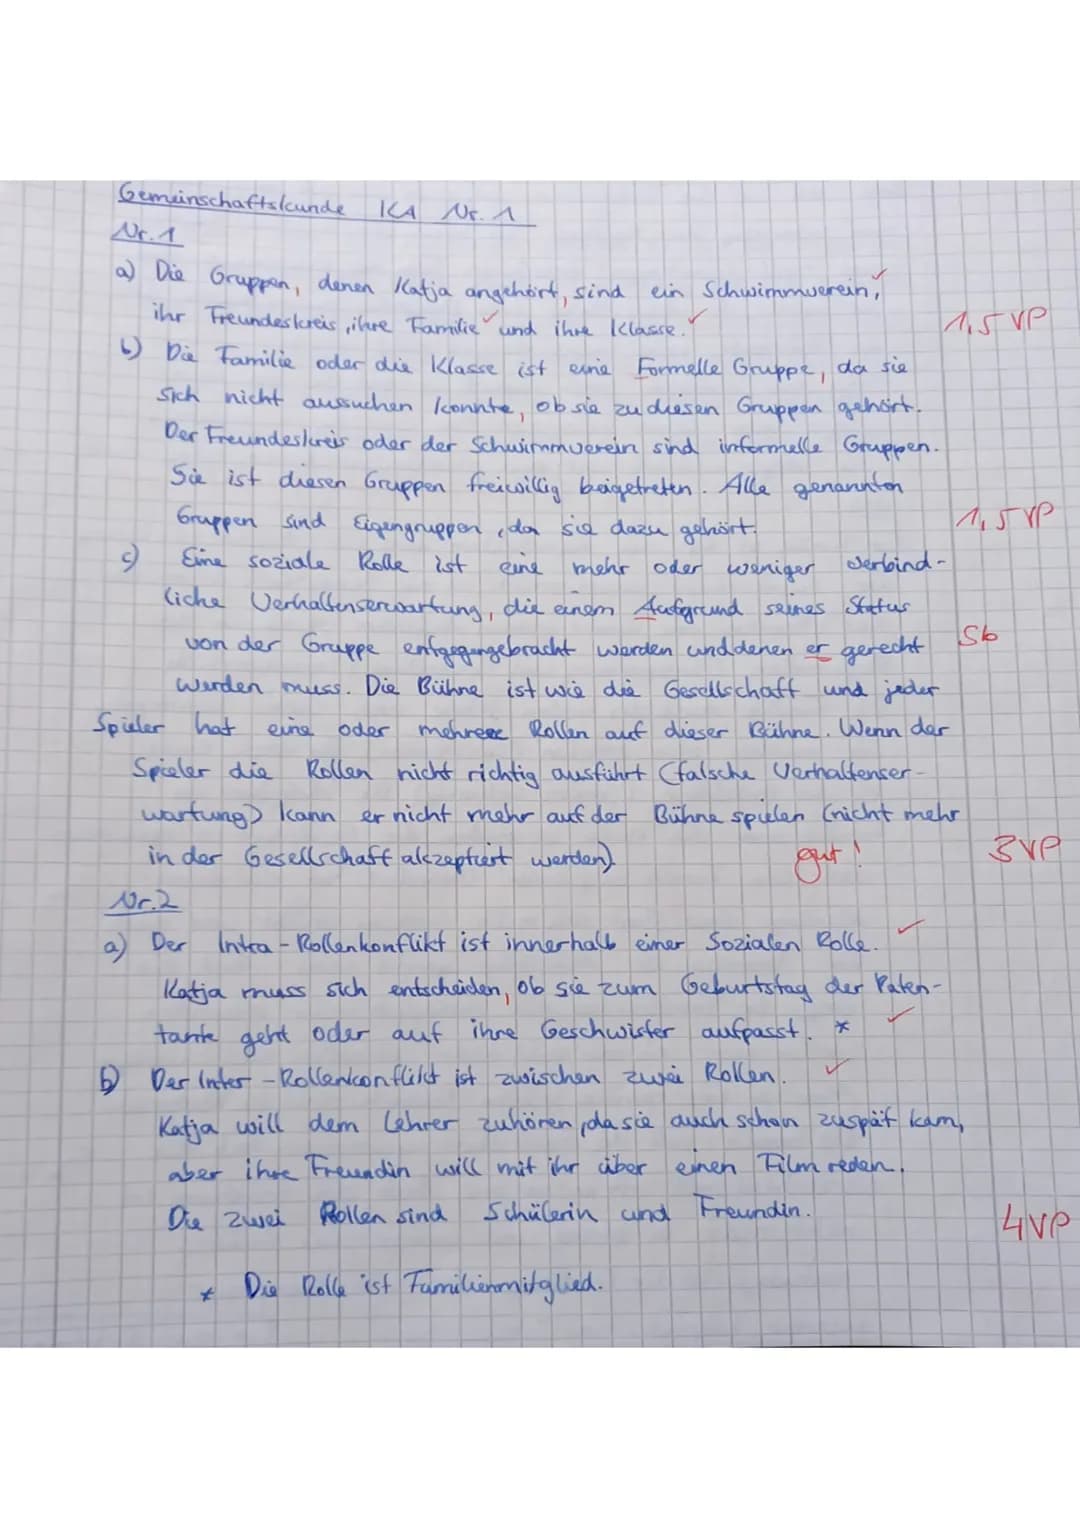 Gemeinschaftskunde KA Nr. 1
Nr. 1
a) Die Gruppen, denen Katja angehört, sind ein Schwimmverein,
ihr Freundeskreis, ihre Familie und ihre Klasse.
1,5 VP
b) Die Familie oder die Klasse ist eine Formelle Gruppe, da sie
sich nicht aussuchen konnte, ob sie zu diesen Gruppen gehört.
Der Freundeskreis oder der Schwimmverein sind informelle Gruppen.
Sie ist diesen Gruppen freiwillig beigetreten. Alle genannten
Gruppen sind Eigengruppen, da sie dazu gehört.
1,5 VP
c) Eine soziale Rolle ist eine mehr oder weniger verbind-
liche Verhaltenserwartung, die einem Aufgrund seines Status
von der Gruppe entgegengebracht werden und denen er gerecht
Sb
werden muss. Die Bühne ist wie die Gesellschaft und jeder
Spieler hat eine oder mehrere Rollen auf dieser Bühne. Wenn der
Spieler die Rollen nicht richtig ausführt (falsche Verhaltenser-
wartung) kann er nicht mehr auf der Bühne spielen (nicht mehr
in der Gesellschaft akzeptiert werden)
gut! 3VP
Nr. 2
a) Der Intra-Rollenkonflikt ist innerhalb einer Sozialen Rolle.
Katja muss sich entscheiden, ob sie zum Geburtstag der Paten-
tante geht oder auf ihre Geschwister aufpasst. *
b) Der Inter-Rollenkonflikt ist zwischen zwei Rollen.
Katja will dem Lehrer zuhören, da sie auch schon zuspät kam,
aber ihre Freundin will mit ihr über einen Film reden.
Die zwei Rollen sind Schülerin und Freundin.
4VP
* Die Rolle ist Familienmitglied.